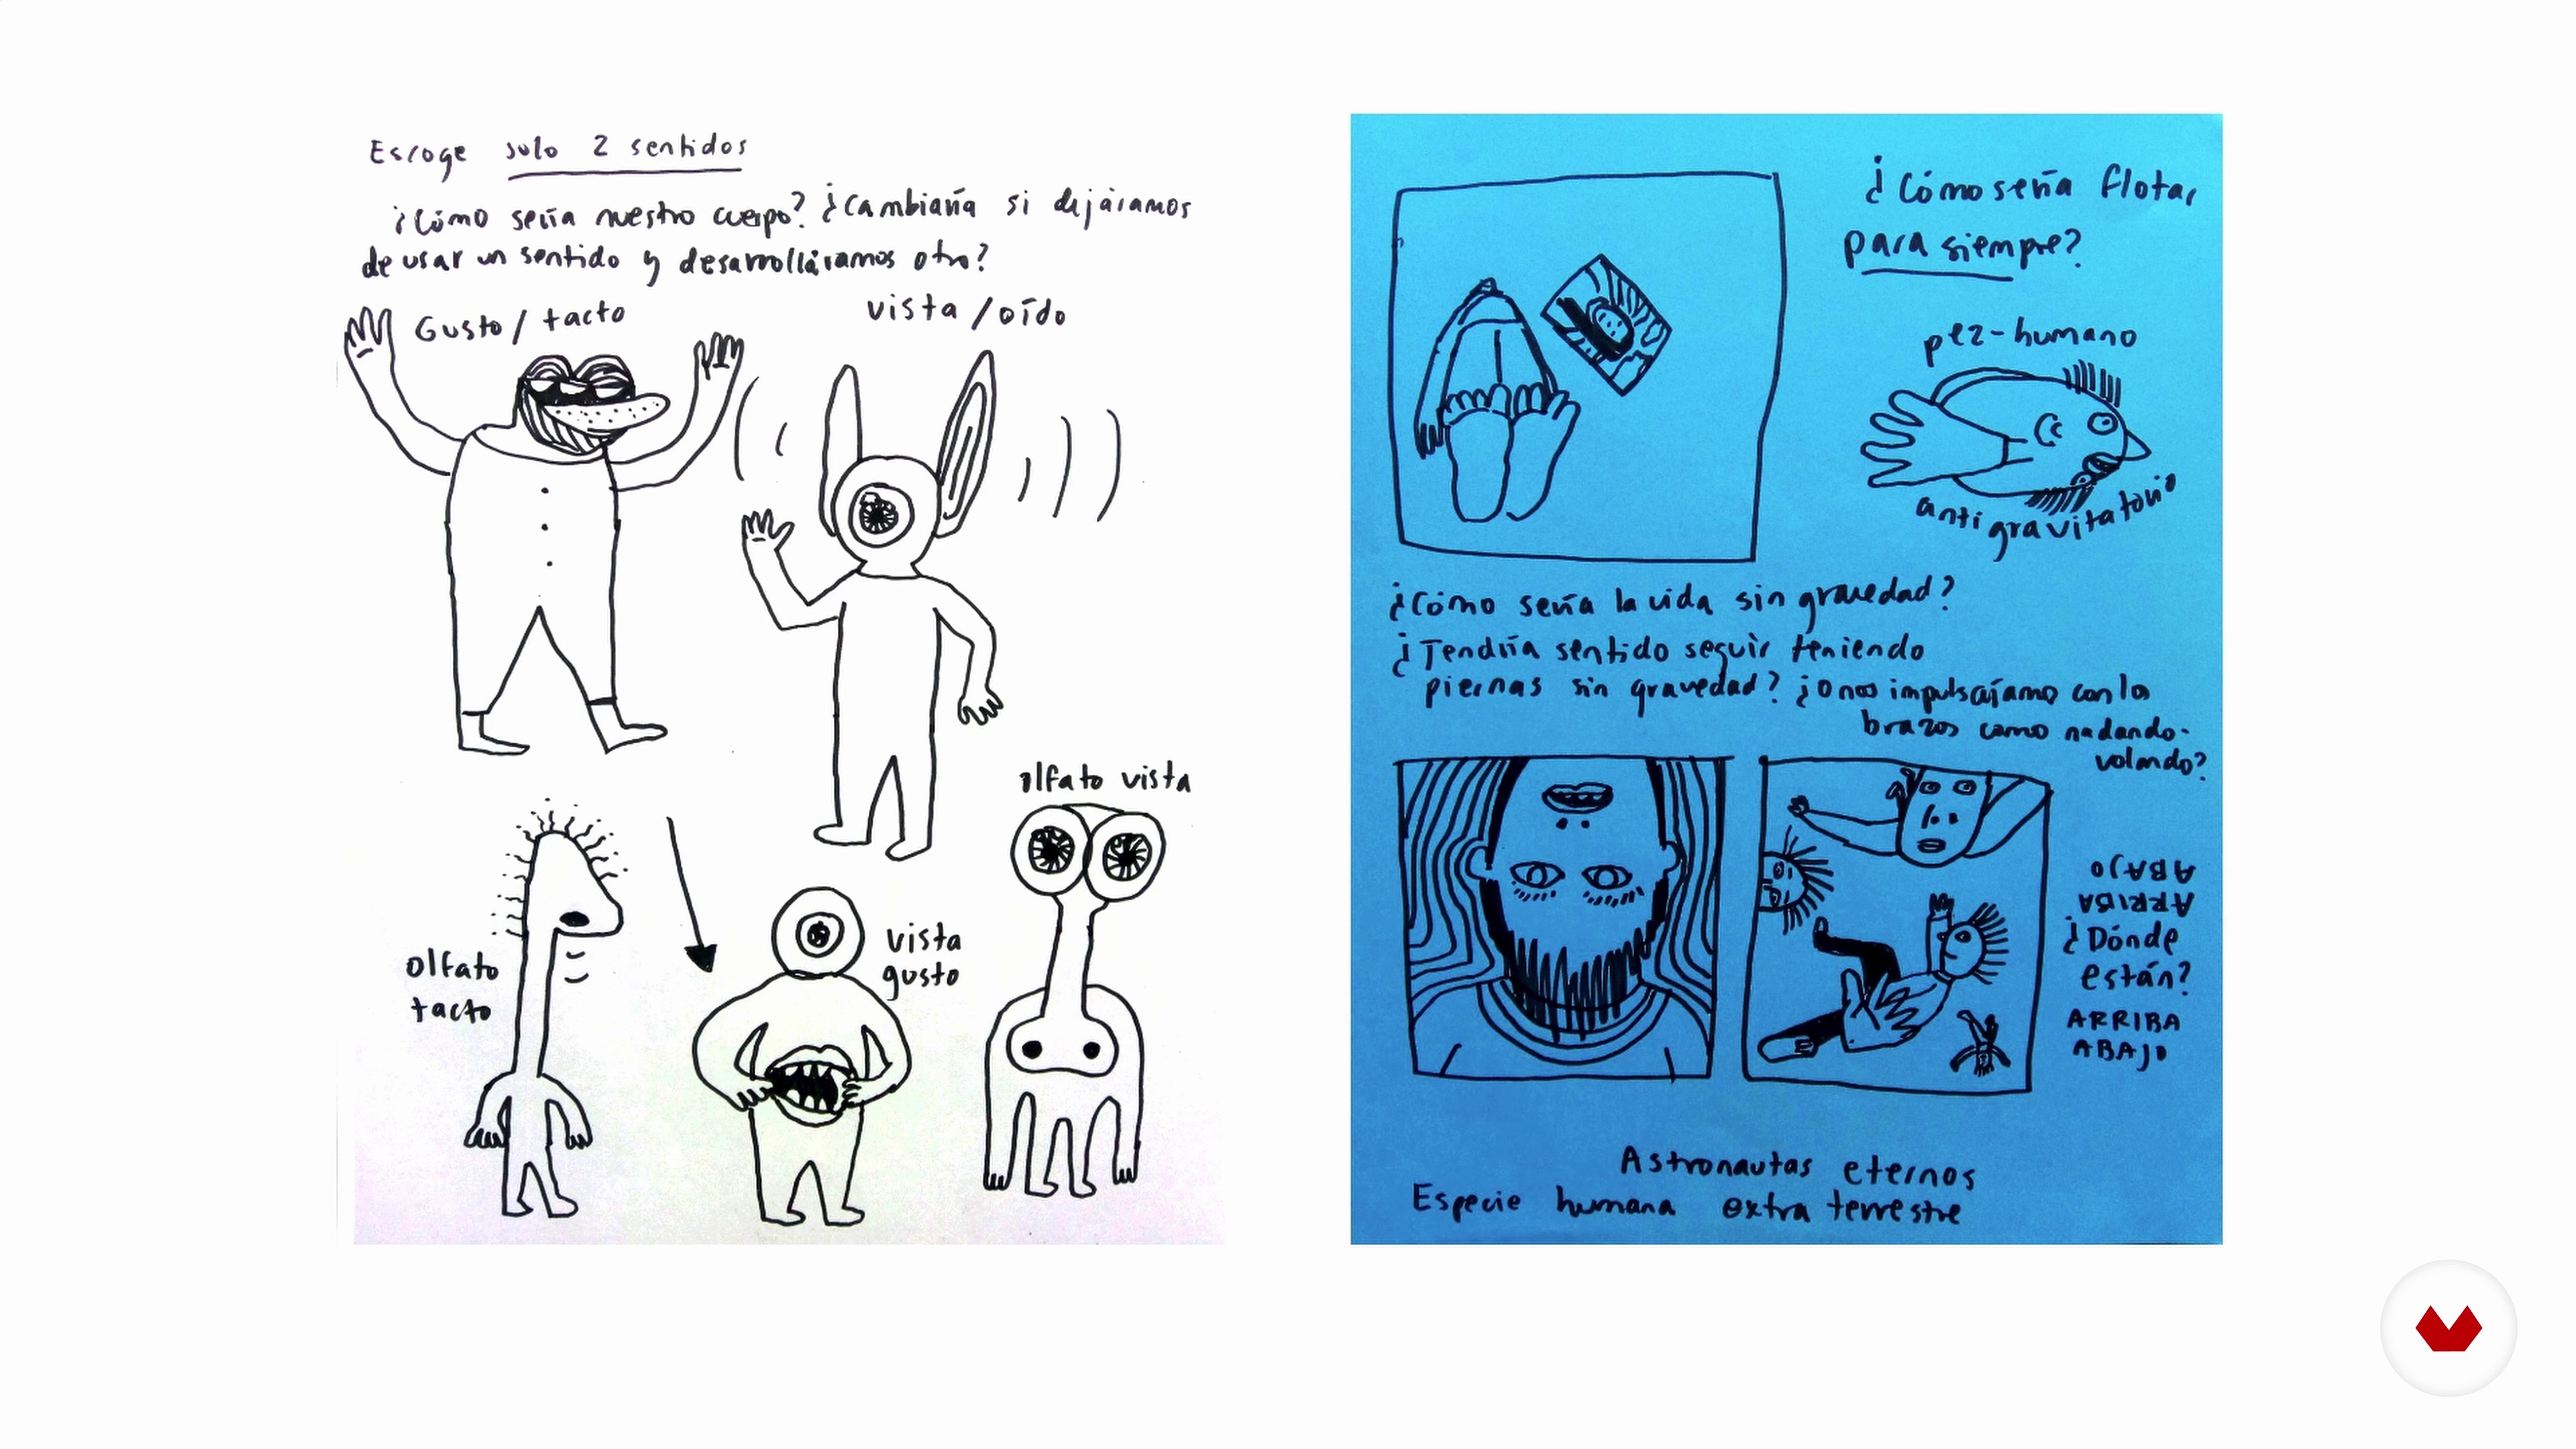 Escoge solo 2 sentidos
¿Cómo sería nuestro cuerpo? ¿Cambiaría si dejáramos
de usar un sentido y desarrolláramos otro?
Gusto / tacto
vista / oído
olfato vista
olfato
tacto
vista
gusto
¿Cómo sería flotar
para siempre?
pez-humano
antigravitatorio
¿Cómo sería la vida sin gravedad?
¿Tendría sentido seguir teniendo
piernas sin gravedad? ¿O nos impulsaríamos con los
brazos como nadando-
volando?
ABAJO
ARRIBA
¿Dónde
están?
ARRIBA
ABAJO
Astronautas eternos
Especie humana extra terrestre